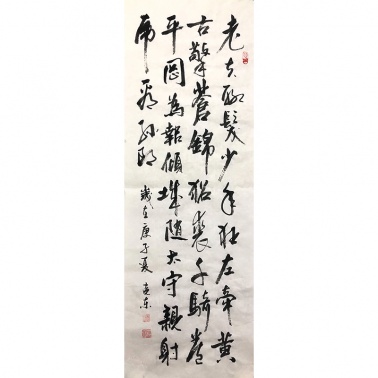 老夫聊髮少年狂左牽黃
右擎蒼錦貂裘千騎卷
平岡為報傾城隨太守親射
虎看孫郎
歲在庚子夏